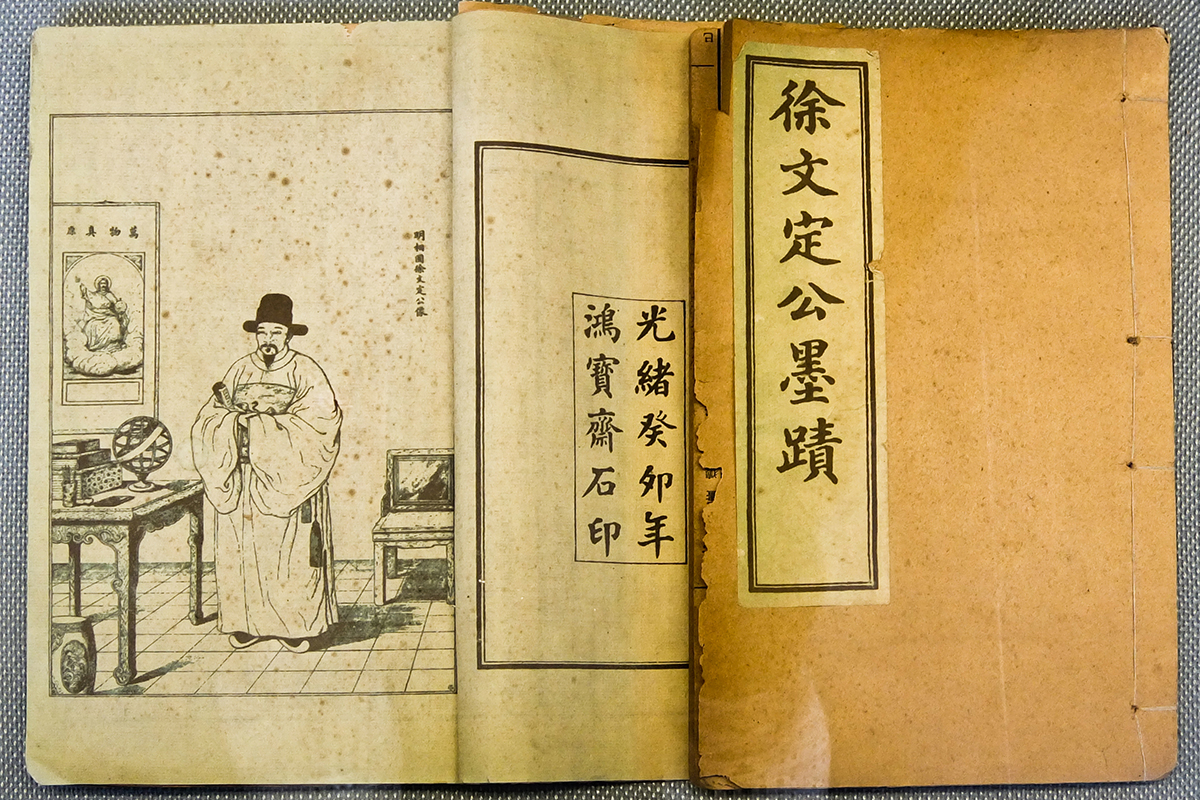 徐文定公墨蹟
光緒癸卯年
鴻寶齋石印
明相國徐文定公像
萬物真原